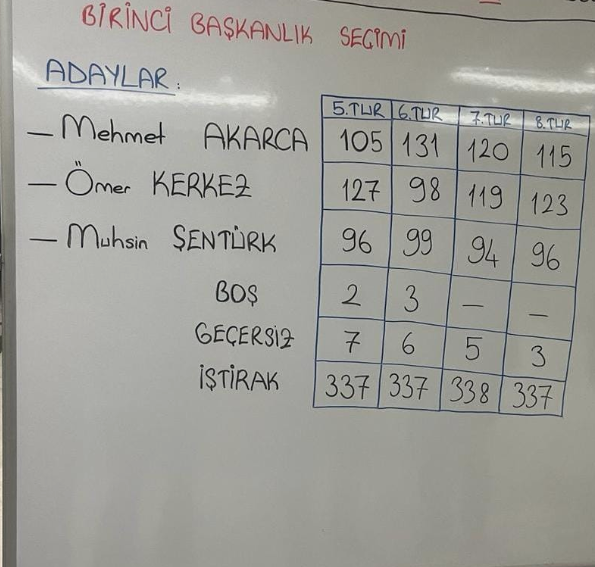 BİRİNCİ BAŞKANLIK SEÇİMİ
ADAYLAR:
5.TUR 6.TUR 7.TUR 8.TUR
— Mehmet AKARCA 105 131 120 115
— Ömer KERKEZ 127 98 119 123
— Muhsin ŞENTÜRK 96 99 94 96
BOŞ 2 3 — —
GEÇERSİZ 7 6 5 3
İŞTİRAK 337 337 338 337